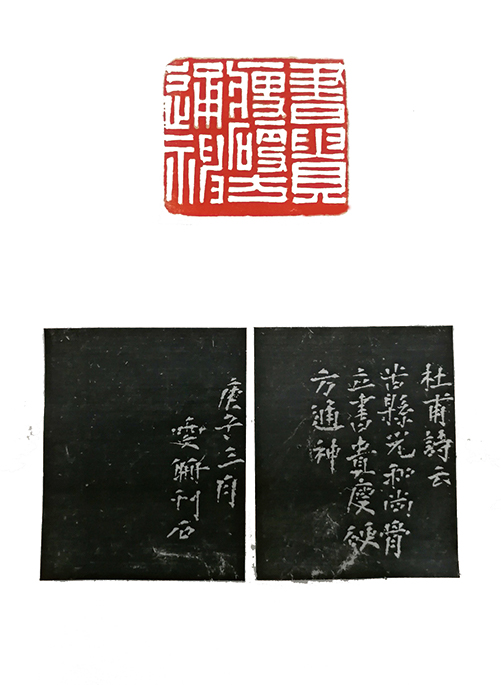 書貴
瘦硬方
通神
杜甫詩云
苦縣光和尚骨
立書貴瘦硬
方通神
庚子三月
刊石